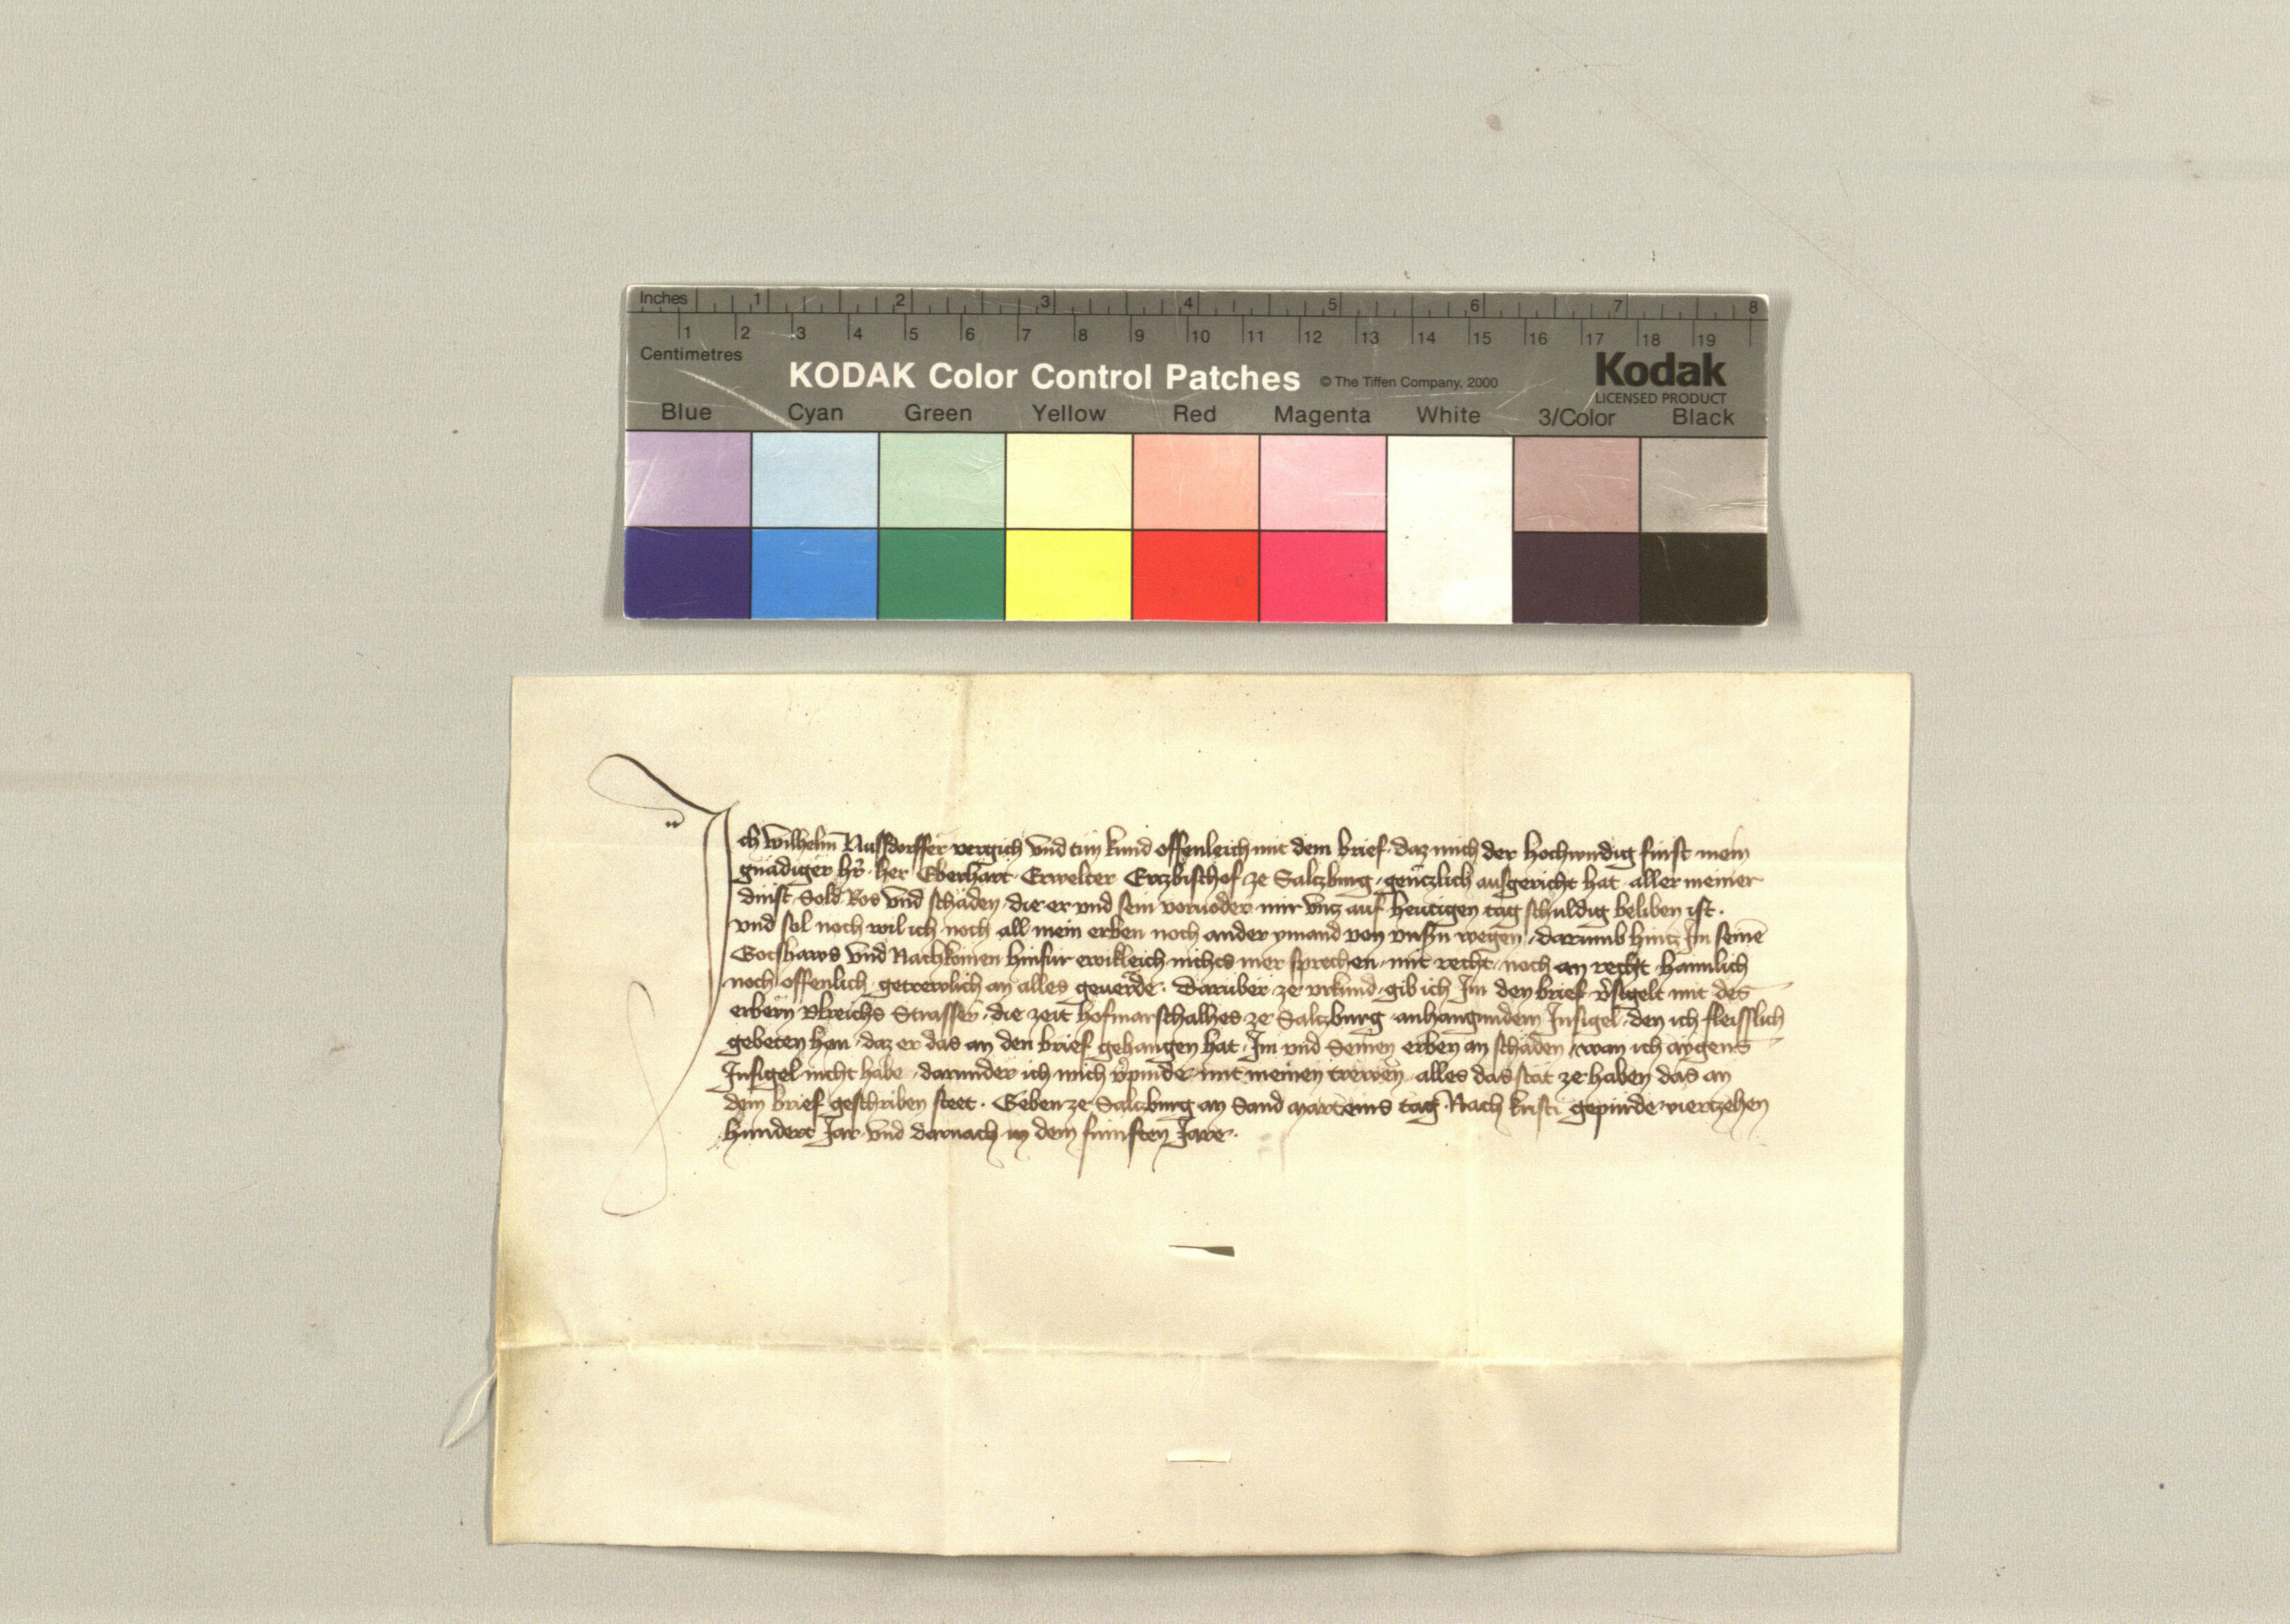 Inches 1 2 3 4 5 6 7 8
1 2 3 4 5 6 7 8 9 10 11 12 13 14 15 16 17 18 19
Centimetres
KODAK Color Control Patches © The Tiffen Company, 2000 Kodak
LICENSED PRODUCT
Blue Cyan Green Yellow Red Magenta White 3/Color Black
Ich Wilhelm Nussdorffer vergich vnd tun kund offenleich mit dem brief · daz mich der hochwirdig fürst mein
gnädiger hr̄ · her Eberhart · Erwelter Erczbischof ze Salczburg · genczlich ausgericht hat · aller meiner
dinst · Sold · Ros vnd schäden · die er vnd sein voruoder mir vncz auf hewtigen tag schuldig beliben ist ·
vnd sol noch wil ich noch all mein erben noch ander ymand von vnsern wegen · darumb hincz Im seinē
Gotshaws vnd Nachkomen hinfür ewikleich nichts mer sprechen · mit recht · noch an recht · haimlich
noch offenlich · getrewlich an alles geuerde · Darüber ze vrkund · gib ich Im den brief v̄sigelt mit des
erbern Vlreichs Strasser · die zeit hofmarschalhes ze Salczburg · anhangundem Insigel · den ich fleisslich
gebeten han · daz er das an den brief gehangen hat · Im vnd Seinen erben an schäden · wan ich aygens
Insigel nicht habe · darunder ich mich v̄pinde mit meinen trewen · alles das stät ze haben das an
dem brief geschriben steet · Geben ze Salczburg an Sand Marteins tag · Nach kristi gepurde vierczehen
hundert Jar · vnd darnach in dem fumften Jare ·